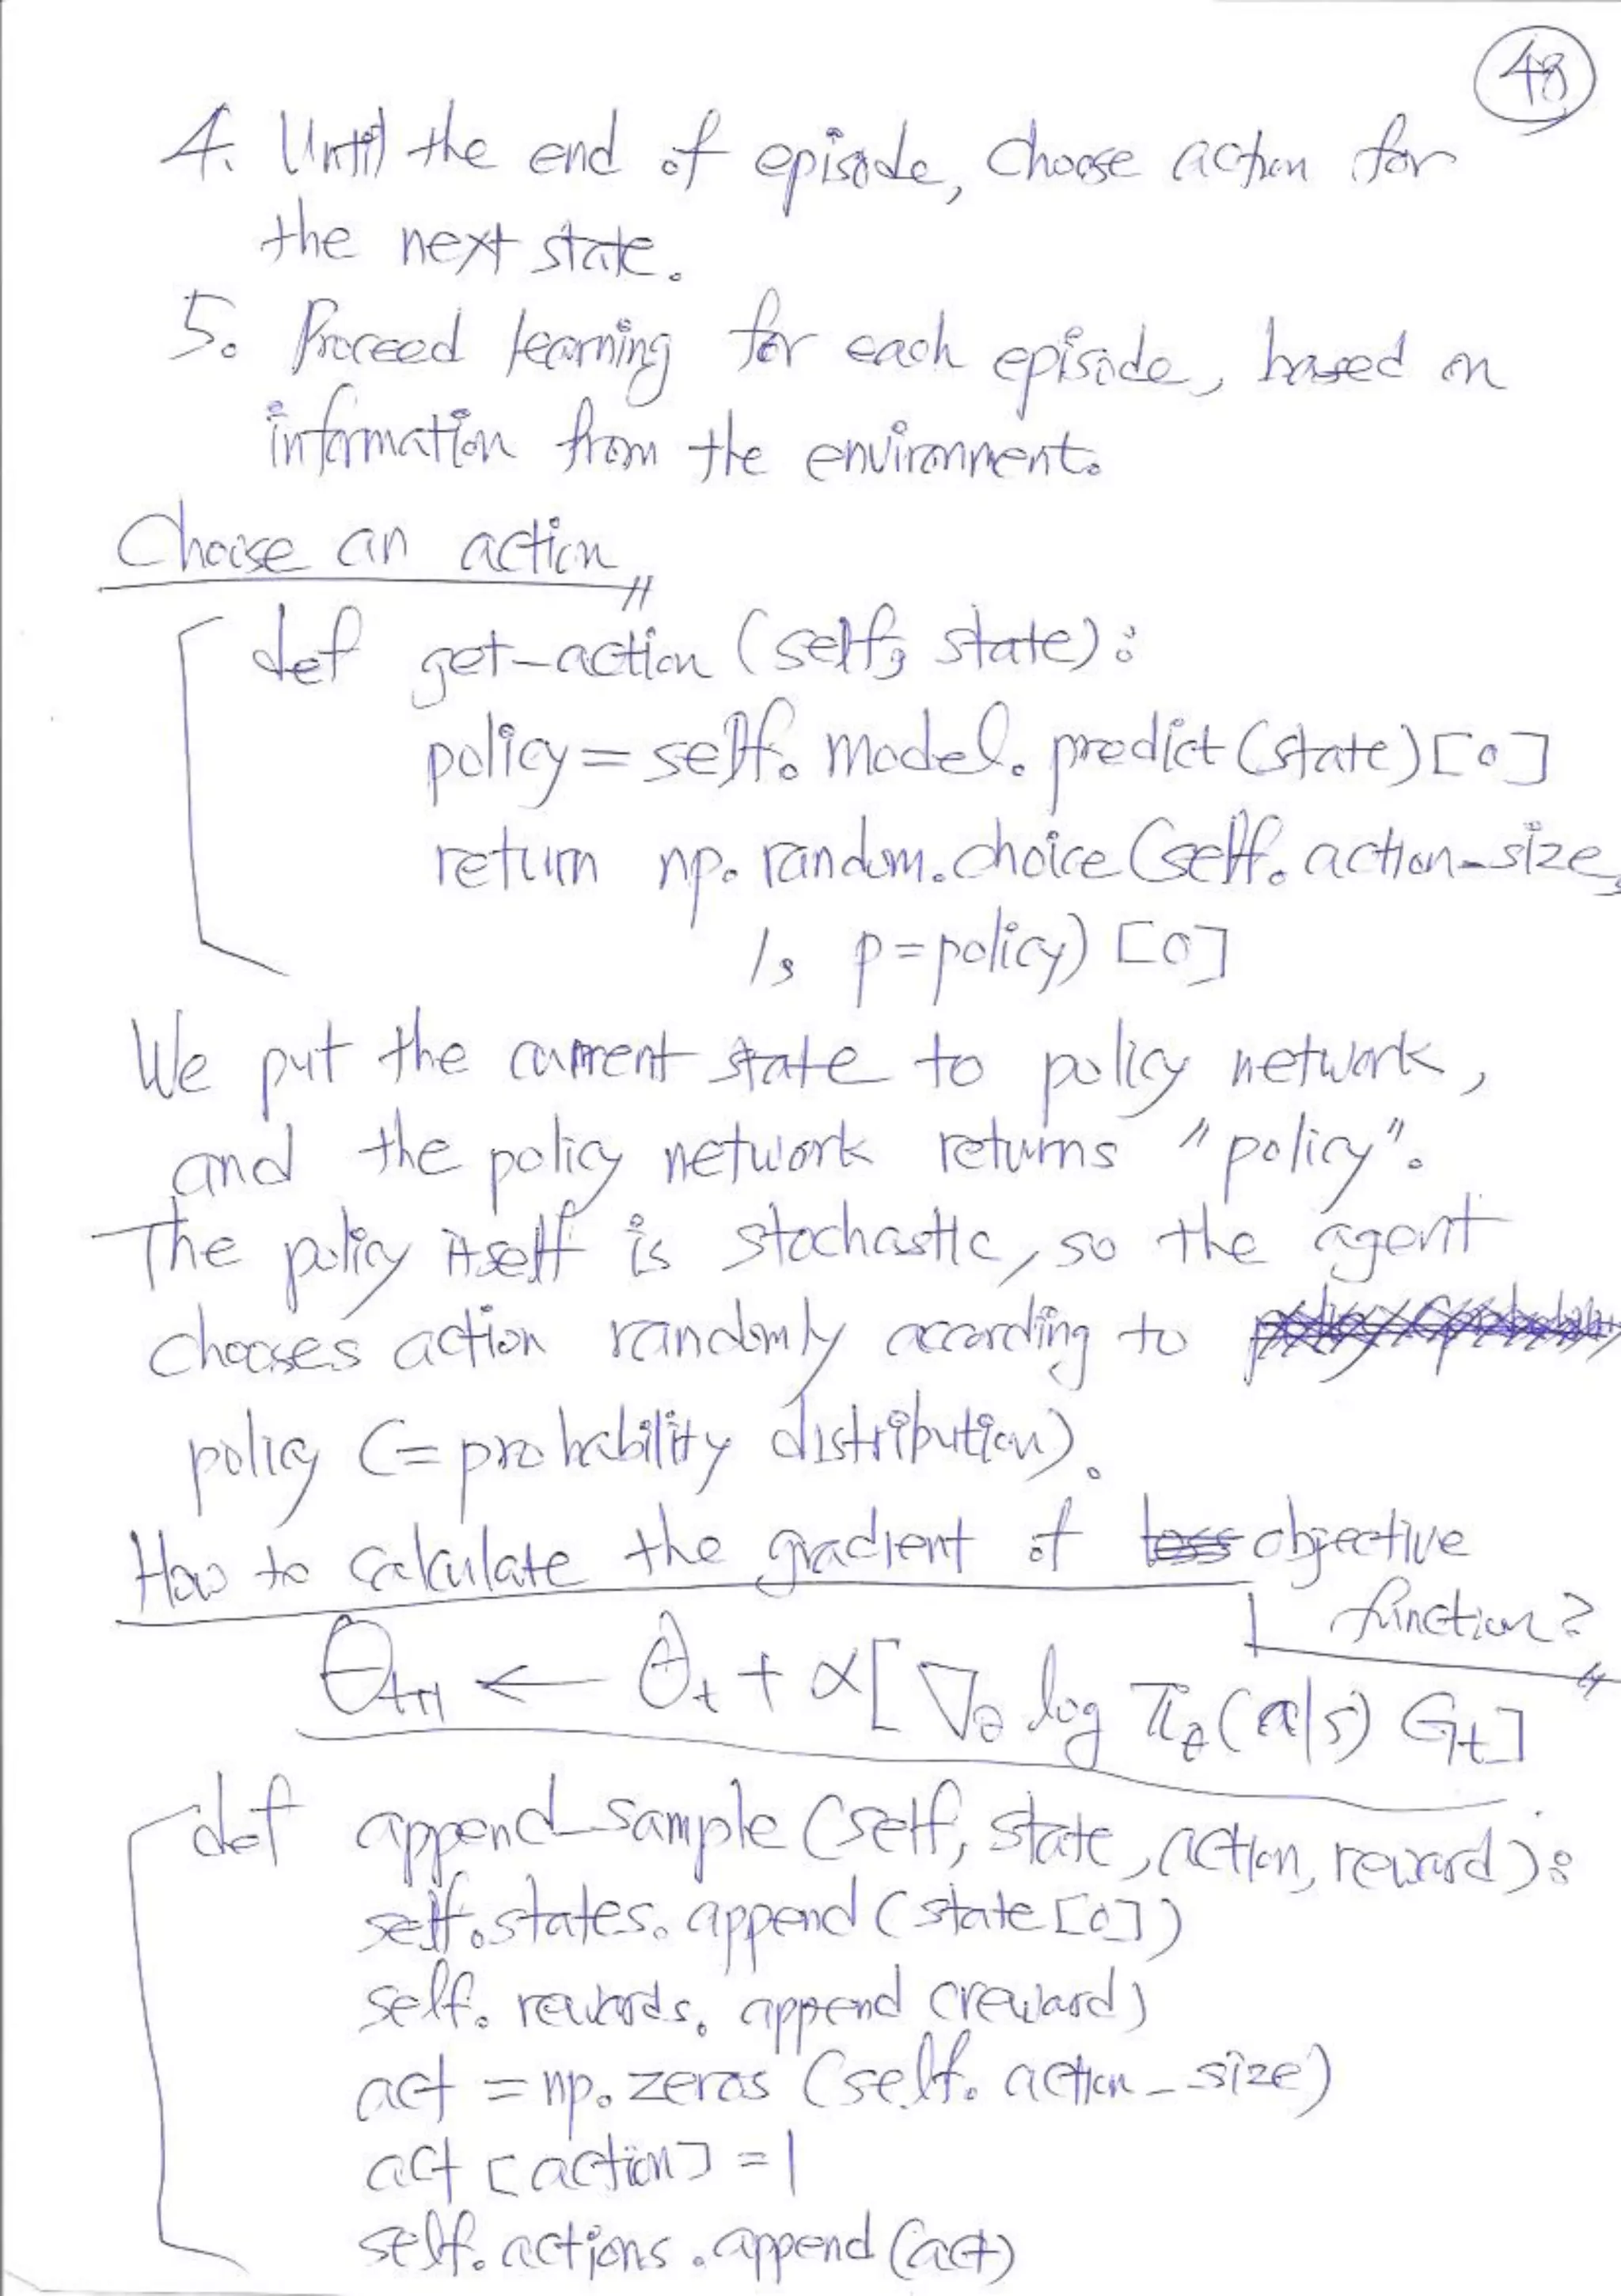 48
4. Until the end of episode, choose action for
the next state.
5. Proceed learning for each episode, based on
information from the environment.
Choose an action
def get-action (self, state):
policy = self. model. predict (state) [0]
return np. random. choice (self. action-size,
1, p = policy) [0]
We put the current state to policy network,
and the policy network returns "policy".
The policy itself is stochastic, so the agent
chooses action randomly according to
policy (= probability distribution).
How to calculate the gradient of loss objective
function?
θt+1 ← θt + α[∇θ log πθ(a|s) Gt]
def append_sample (self, state, action, reward):
self.states. append (state [0])
self. rewards. append (reward)
act = np. zeros (self. action_size)
act [action] = 1
self. actions. append (act)